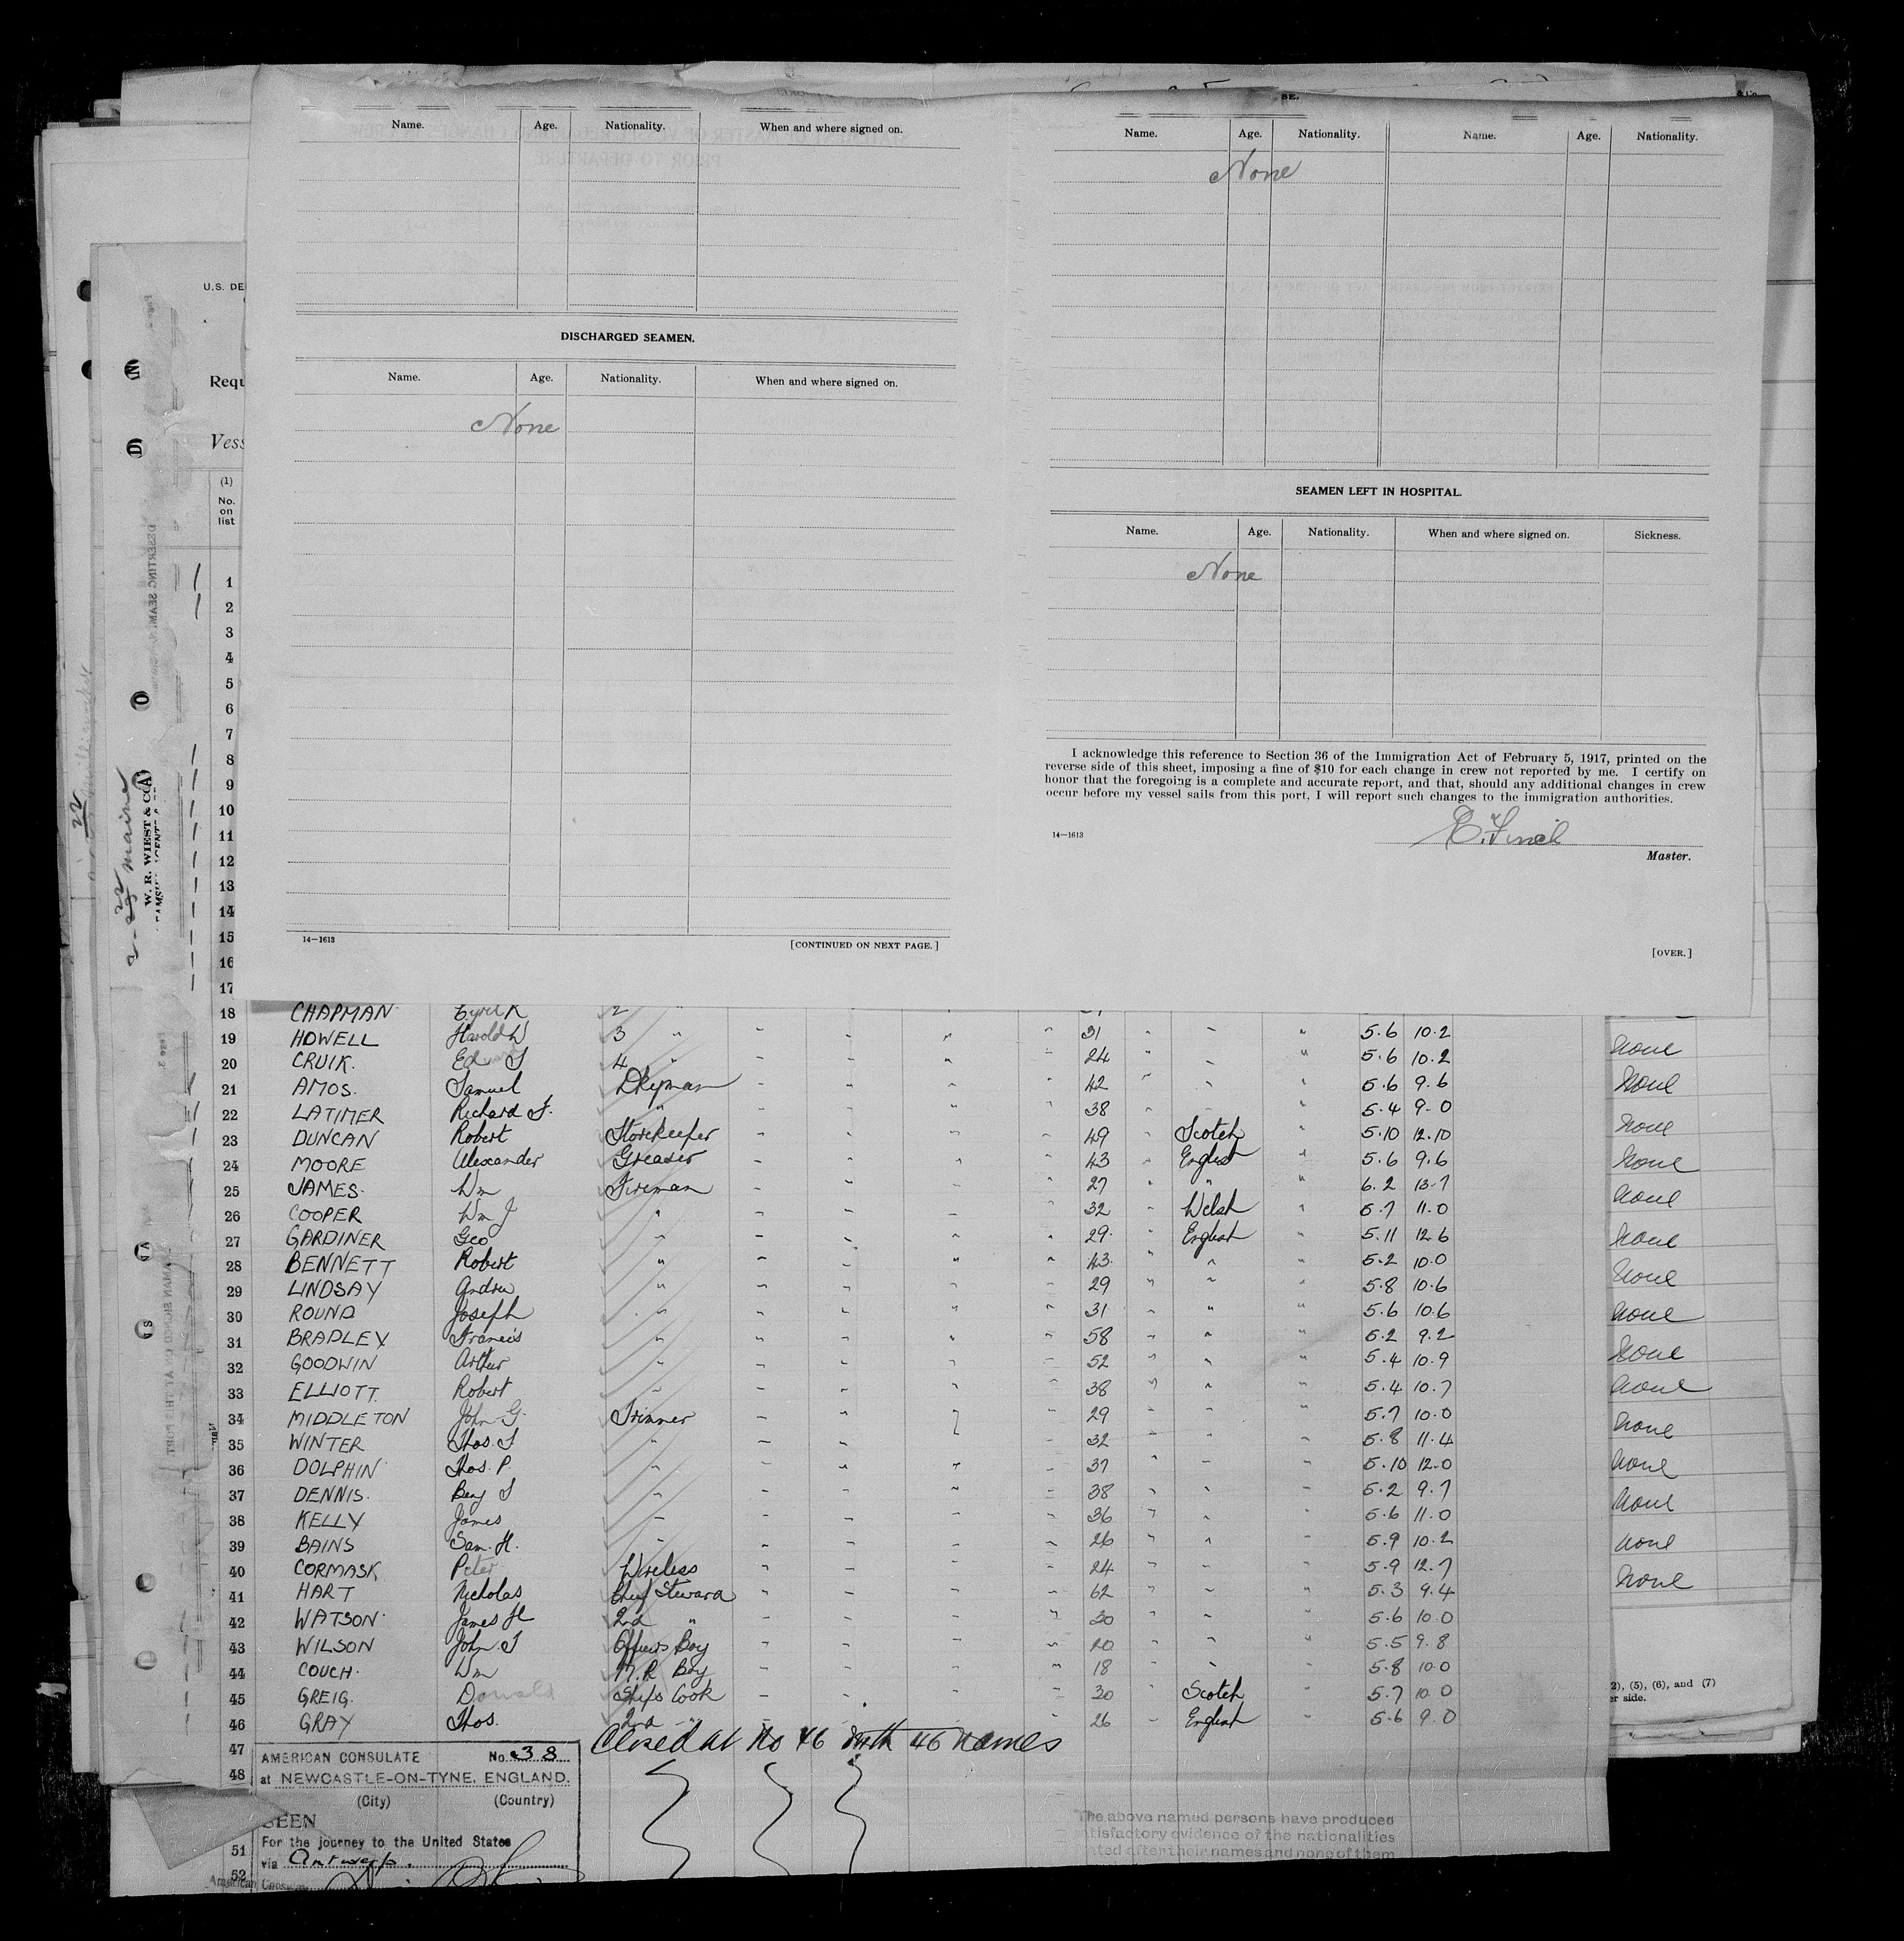 Name. Age. Nationality. When and where signed on.
DISCHARGED SEAMEN.
Name. Age. Nationality. When and where signed on.
None
14—1613 [CONTINUED ON NEXT PAGE.]
Name. Age. Nationality. Name. Age. Nationality.
None
SEAMEN LEFT IN HOSPITAL.
Name. Age. Nationality. When and where signed on. Sickness.
None
I acknowledge this reference to Section 36 of the Immigration Act of February 5, 1917, printed on the
reverse side of this sheet, imposing a fine of $10 for each change in crew not reported by me. I certify on
honor that the foregoing is a complete and accurate report, and that, should any additional changes in crew
occur before my vessel sails from this port, I will report such changes to the immigration authorities.
14—1613
Master.
[OVER.]
U.S. DE
Requ
Vess
(1)
No.
on
list
W. R. WIEST & CO
1
2
3
4
5
6
7
8
9
10
11
12
13
14
15
16
17
18 CHAPMAN Cyril K 2 "
19 HOWELL Harold W 3 " 31 5.6 10.2
20 CRUIK. 4 " 24 5.6 10.2 None
21 AMOS. Samuel Dkyman 42 5.6 9.6 None
22 LATIMER Richard F. " 38 5.4 9.0
23 DUNCAN Robert Storekeeper 49 Scotch 5.10 12.10 None
24 MOORE Alexander Greaser 43 English 5.6 9.6 None
25 JAMES. Wm Fireman 27 " 6.2 13.7 None
26 COOPER Wm J " 32 Welsh 5.7 11.0
27 GARDINER Geo " 29. English 5.11 12.6 None
28 BENNETT Robert " 43. " 5.2 10.0 None
29 LINDSAY Andrew " 29 " 5.8 10.6
30 ROUND Joseph " 31 " 5.6 10.6 None
31 BRADLEY Francis " 58 " 5.2 9.2
32 GOODWIN Arthur " 52 " 5.4 10.9 None
33 ELLIOTT. Robert " 38 " 5.4 10.7 None
34 MIDDLETON John G. Trimmer 29 " 5.7 10.0 None
35 WINTER Thos. " 32 " 5.8 11.4
36 DOLPHIN Thos. P. " 37 " 5.10 12.0 None
37 DENNIS. Benj " 38 " 5.2 9.7 None
38 KELLY James " 36 " 5.6 11.0
39 BAINS Sam. H. " 26 " 5.9 10.2 None
40 CORMASK Peter Wireless 24 " 5.9 12.7 None
41 HART Nicholas Chief Steward 62 " 5.3 9.4
42 WATSON James H 2nd " 30 " 5.6 10.0
43 WILSON John Officers Boy 20 " 5.5 9.8
44 COUCH. Wm M.R Boy 18 " 5.8 10.0
45 GREIG. Donald Ships Cook 30 Scotch 5.7 10.0
46 GRAY Thos. 2nd " 26 English 5.6 9.0
47 Closed at No 46 with 46 names
48
51
52
AMERICAN CONSULATE No. 38
at NEWCASTLE-ON-TYNE, ENGLAND.
(City) (Country)
SEEN
For the journey to the United States
via Antwerp.
The above named persons have produced
satisfactory evidence of the nationalities
stated after their names and none of them
2), (5), (6), and (7)
er side.